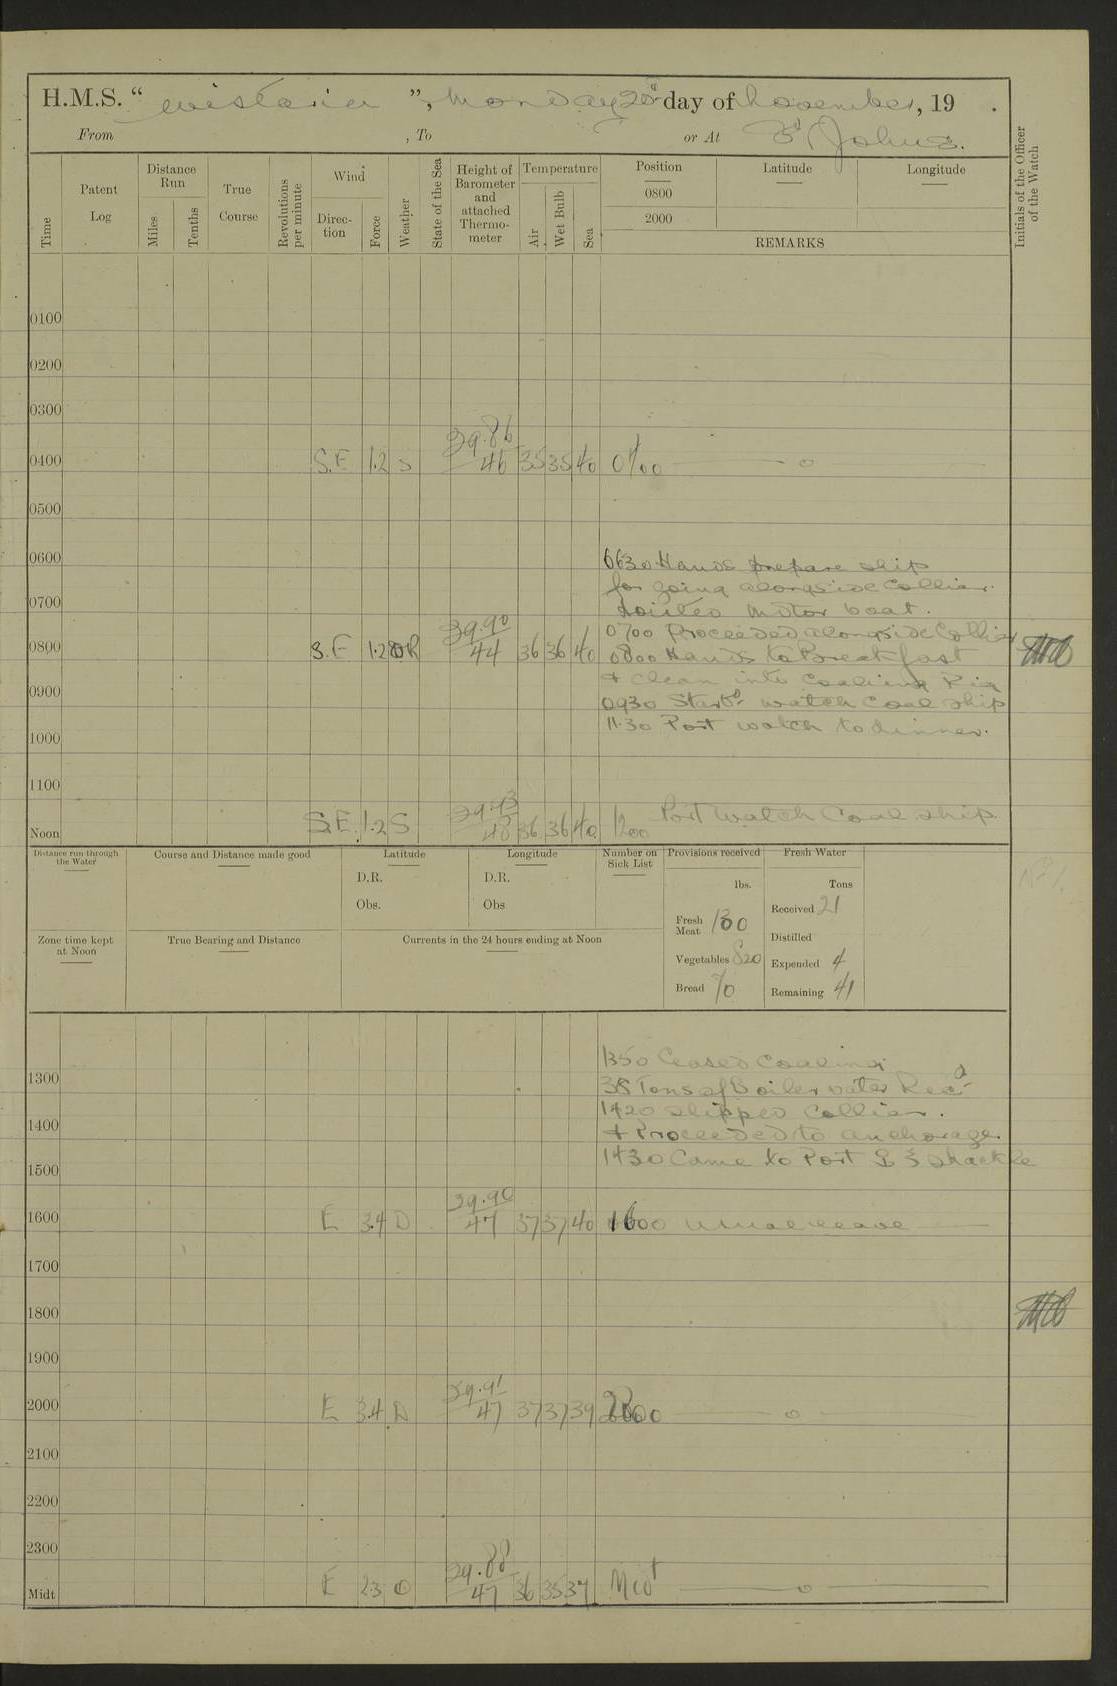 H.M.S. " Wistaria ", Monday 20th day of November, 19 .
From , To or At St Johns.
Time
Patent Log
Distance Run
Miles
Tenths
True Course
Revolutions per minute
Wind
Direction
Force
Weather
State of the Sea
Height of Barometer and attached Thermometer
Temperature
Air
Wet Bulb
Sea
Position
0800
2000
Latitude
Longitude
REMARKS
Initials of the Officer of the Watch
0100
0200
0300
29.86
0400 S.E 1.2 S 46 35 35 40 0400 — o —
0500
0600 0630 Hands prepare ship
for going alongside Collier.
0700 Hoisted motor boat.
29.90 0700 Proceeded alongside Collier
0800 S.E 1.2 OR 44 36 36 40 0800 Hands to Breakfast
& clean into Coaling Rig
0900 0930 Starbd watch Coal ship
1000 11.30 Port watch to dinner.
1100
29.93
Noon S.E. 1.2 S 48 36 36 40 1200 Port watch Coal ship
Distance run through the Water
Course and Distance made good
Latitude
D.R.
Obs.
Longitude
D.R.
Obs
Number on Sick List
Provisions received
lbs.
Fresh Meat 130
Vegetables 820
Bread 70
Fresh Water
Tons
Received 21
Distilled
Expended 4
Remaining 41
Zone time kept at Noon
True Bearing and Distance
Currents in the 24 hours ending at Noon
1350 Ceased Coaling
1300 38 Tons of Boiler water Recd
1420 slipped Collier.
1400 & Proceeded to anchorage.
1500 1430 Came to Port & 3 shackle
29.90
1600 E 3.4 D 47 37 37 40 1600 usual leave
1700
1800
1900
29.91
2000 E 3.4 D 47 37 37 39 2000 — o —
2100
2200
2300
29.88
Midt E 2.3 O 47 36 35 37 Midt — o —